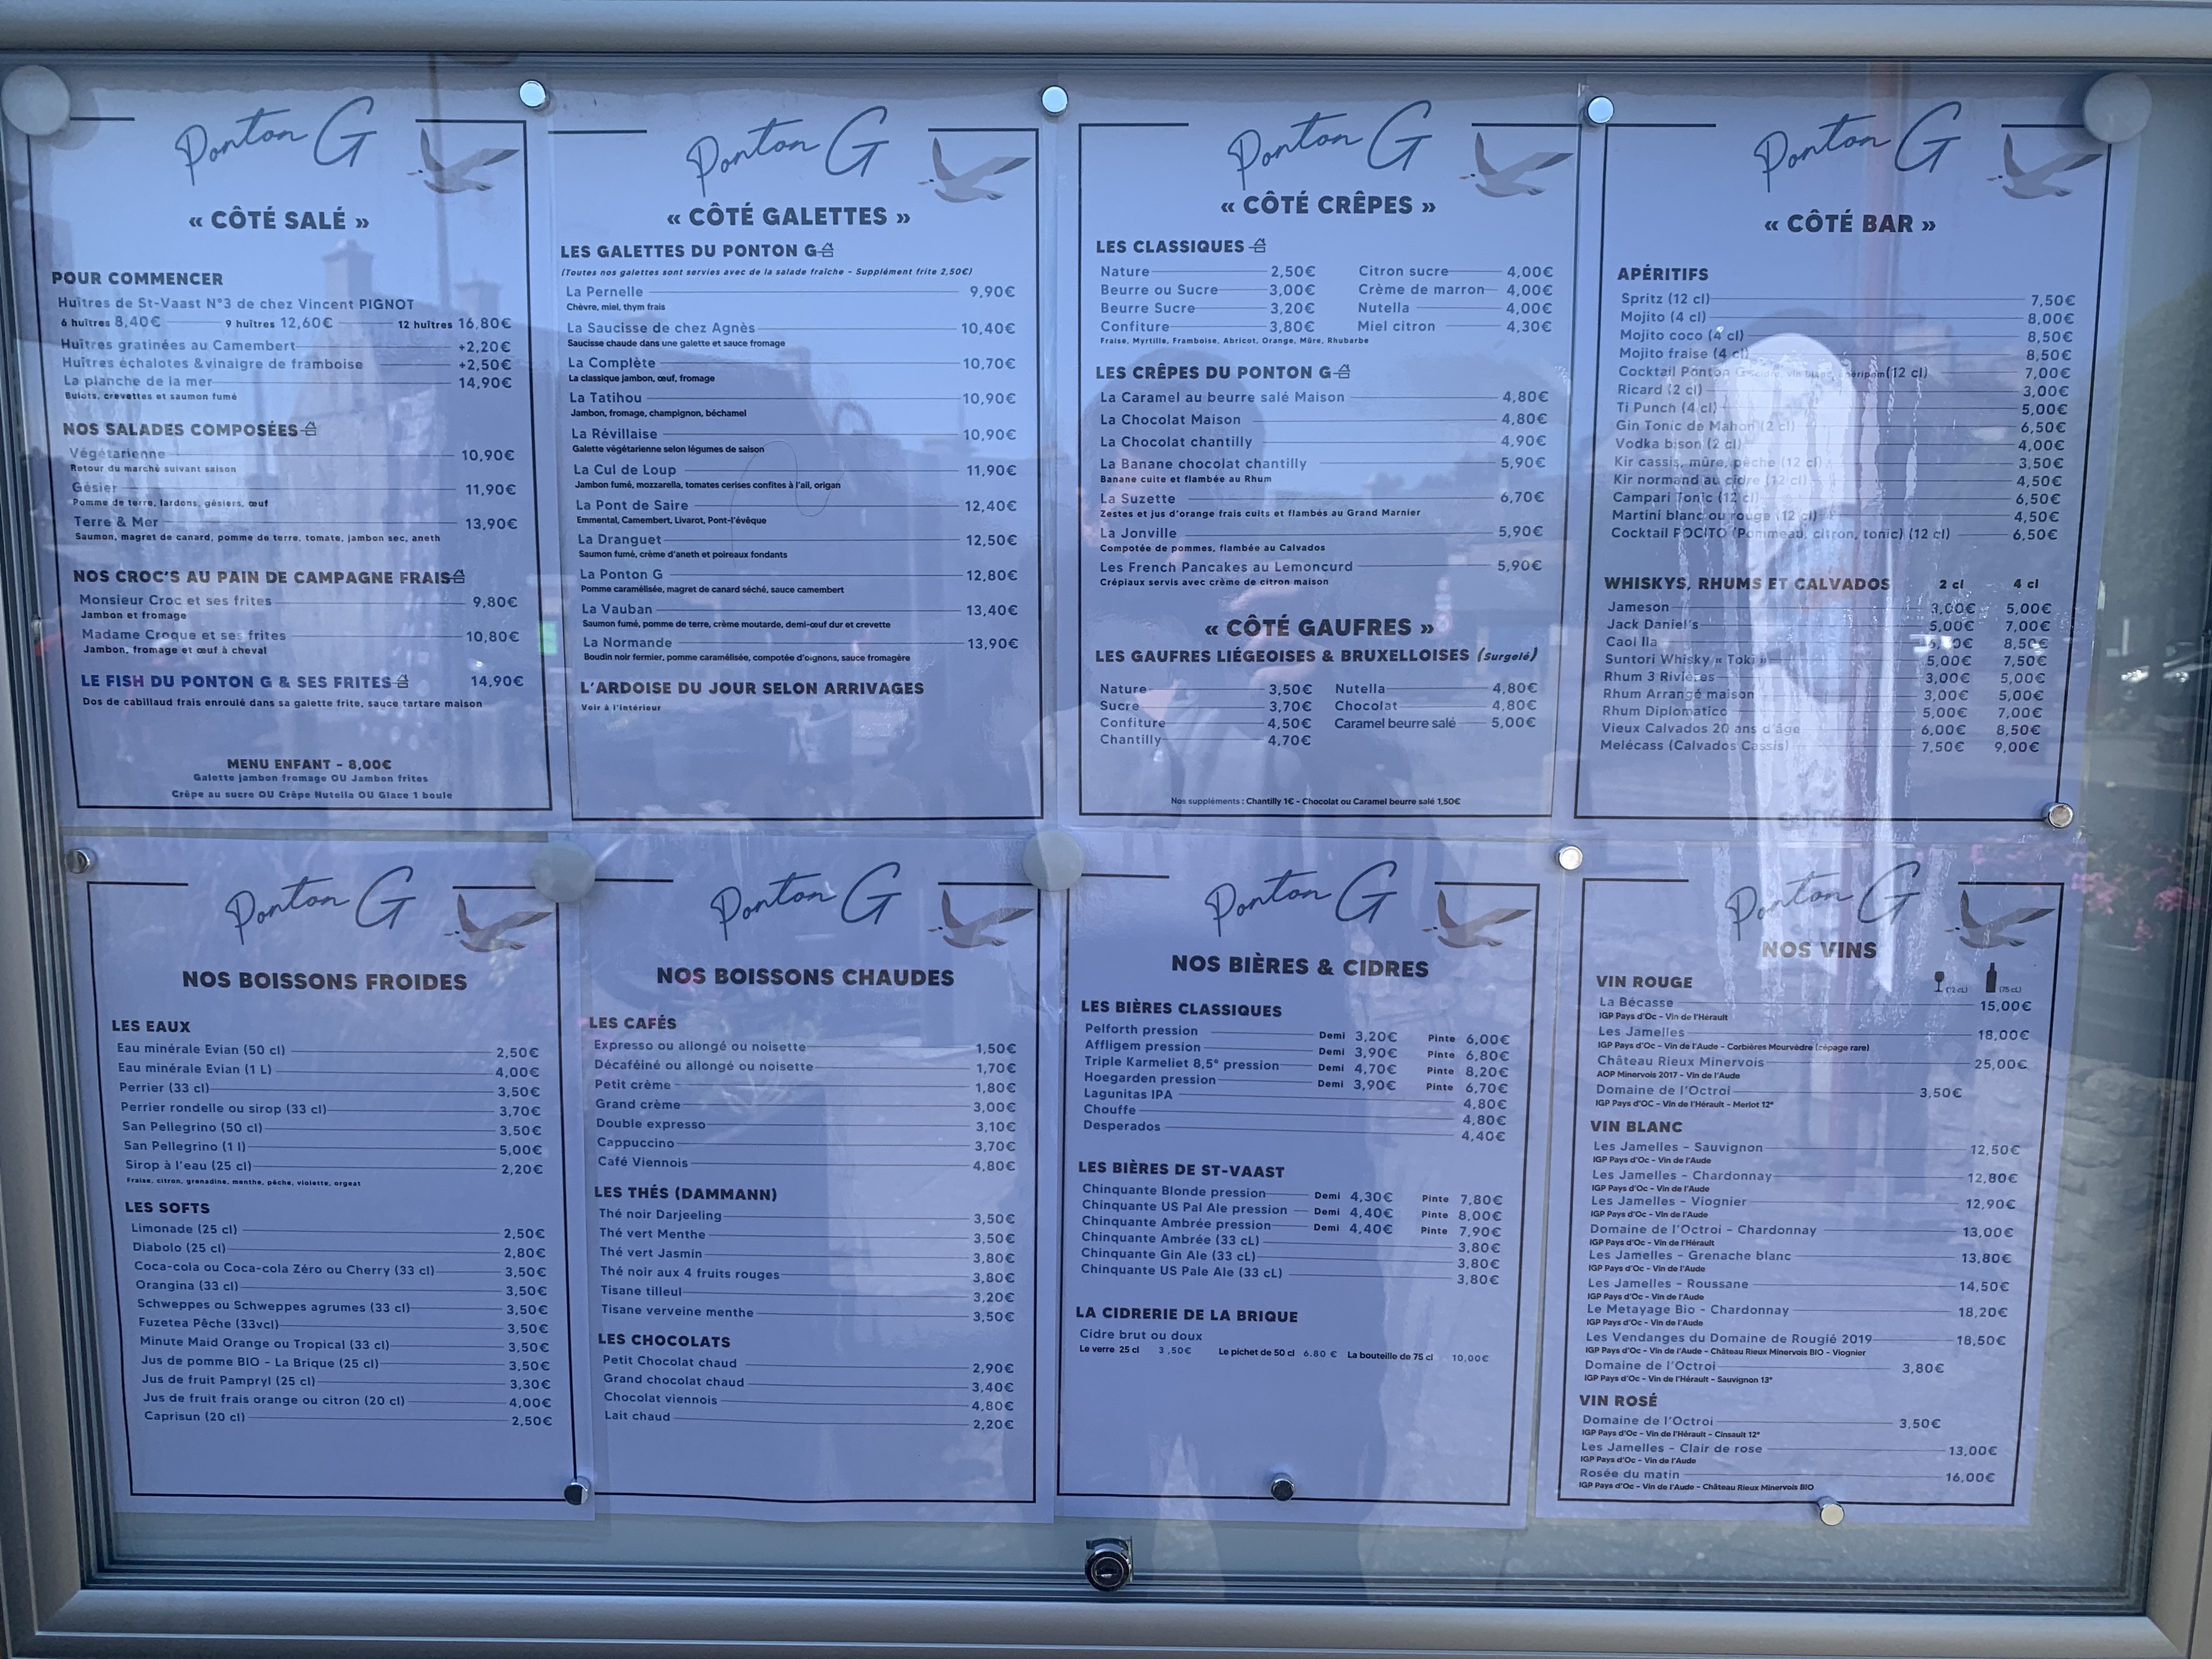 Ponton G
« CÔTÉ SALÉ »
POUR COMMENCER
Huîtres de St-Vaast N°3 de chez Vincent PIGNOT
6 huîtres 8,40€ 9 huîtres 12,60€ 12 huîtres 16,80€
Huîtres gratinées au Camembert +2,20€
Huîtres échalotes &vinaigre de framboise +2,50€
La planche de la mer 14,90€
Bulots, crevettes et saumon fumé
NOS SALADES COMPOSÉES
Végétarienne 10,90€
Retour du marché suivant saison
Gésier 11,90€
Pomme de terre, lardons, gésiers, œuf
Terre & Mer 13,90€
Saumon, magret de canard, pomme de terre, tomate, jambon sec, aneth
NOS CROC'S AU PAIN DE CAMPAGNE FRAIS
Monsieur Croc et ses frites 9,80€
Jambon et fromage
Madame Croque et ses frites 10,80€
Jambon, fromage et œuf à cheval
LE FISH DU PONTON G & SES FRITES 14,90€
Dos de cabillaud frais enroulé dans sa galette frite, sauce tartare maison
MENU ENFANT - 8,00€
Galette jambon fromage OU Jambon frites
Crêpe au sucre OU Crêpe Nutella OU Glace 1 boule
Ponton G
« CÔTÉ GALETTES »
LES GALETTES DU PONTON G
(Toutes nos galettes sont servies avec de la salade fraîche - Supplément frite 2,50€)
La Pernelle 9,90€
Chèvre, miel, thym frais
La Saucisse de chez Agnès 10,40€
Saucisse chaude dans une galette et sauce fromage
La Complète 10,70€
La classique jambon, œuf, fromage
La Tatihou 10,90€
Jambon, fromage, champignon, béchamel
La Révillaise 10,90€
Galette végétarienne selon légumes de saison
La Cul de Loup 11,90€
Jambon fumé, mozzarella, tomates cerises confites à l'ail, origan
La Pont de Saire 12,40€
Emmental, Camembert, Livarot, Pont-l'évêque
La Dranguet 12,50€
Saumon fumé, crème d'aneth et poireaux fondants
La Ponton G 12,80€
Pomme caramélisée, magret de canard séché, sauce camembert
La Vauban 13,40€
Saumon fumé, pomme de terre, crème moutarde, demi-œuf dur et crevette
La Normande 13,90€
Boudin noir fermier, pomme caramélisée, compotée d'oignons, sauce fromagère
L'ARDOISE DU JOUR SELON ARRIVAGES
Voir à l'intérieur
Ponton G
« CÔTÉ CRÊPES »
LES CLASSIQUES
Nature 2,50€ Citron sucre 4,00€
Beurre ou Sucre 3,00€ Crème de marron 4,00€
Beurre Sucre 3,20€ Nutella 4,00€
Confiture 3,80€ Miel citron 4,30€
Fraise, Myrtille, Framboise, Abricot, Orange, Mûre, Rhubarbe
LES CRÊPES DU PONTON G
La Caramel au beurre salé Maison 4,80€
La Chocolat Maison 4,80€
La Chocolat chantilly 4,90€
La Banane chocolat chantilly 5,90€
Banane cuite et flambée au Rhum
La Suzette 6,70€
Zestes et jus d'orange frais cuits et flambés au Grand Marnier
La Jonville 5,90€
Compotée de pommes, flambée au Calvados
Les French Pancakes au Lemoncurd 5,90€
Crépiaux servis avec crème de citron maison
« CÔTÉ GAUFRES »
LES GAUFRES LIÉGEOISES & BRUXELLOISES (Surgelé)
Nature 3,50€ Nutella 4,80€
Sucre 3,70€ Chocolat 4,80€
Confiture 4,50€ Caramel beurre salé 5,00€
Chantilly 4,70€
Nos suppléments : Chantilly 1€ - Chocolat ou Caramel beurre salé 1,50€
Ponton G
« CÔTÉ BAR »
APÉRITIFS
Spritz (12 cl) 7,50€
Mojito (4 cl) 8,00€
Mojito coco (4 cl) 8,50€
Mojito fraise (4 cl) 8,50€
Cocktail Ponton G (12 cl) 7,00€
Ricard (2 cl) 3,00€
Ti Punch (4 cl) 5,00€
Gin Tonic de Mahon (2 cl) 6,50€
Vodka bison (2 cl) 4,00€
Kir cassis, mûre, pêche (12 cl) 3,50€
Kir normand au cidre (12 cl) 4,50€
Campari Tonic (12 cl) 6,50€
Martini blanc ou rouge (12 cl) 4,50€
Cocktail POCITO (Pommeau, citron, tonic) (12 cl) 6,50€
WHISKYS, RHUMS ET CALVADOS 2 cl 4 cl
Jameson 3,00€ 5,00€
Jack Daniel's 5,00€ 7,00€
Caol Ila 8,50€
Suntori Whisky « Toki » 5,00€ 7,50€
Rhum 3 Rivières 3,00€ 5,00€
Rhum Arrangé maison 3,00€ 5,00€
Rhum Diplomatico 5,00€ 7,00€
Vieux Calvados 20 ans d'âge 6,00€ 8,50€
Melécass (Calvados Cassis) 7,50€ 9,00€
Ponton G
NOS BOISSONS FROIDES
LES EAUX
Eau minérale Evian (50 cl) 2,50€
Eau minérale Evian (1 L) 4,00€
Perrier (33 cl) 3,50€
Perrier rondelle ou sirop (33 cl) 3,70€
San Pellegrino (50 cl) 3,50€
San Pellegrino (1 l) 5,00€
Sirop à l'eau (25 cl) 2,20€
Fraise, citron, grenadine, menthe, pêche, violette, orgeat
LES SOFTS
Limonade (25 cl) 2,50€
Diabolo (25 cl) 2,80€
Coca-cola ou Coca-cola Zéro ou Cherry (33 cl) 3,50€
Orangina (33 cl) 3,50€
Schweppes ou Schweppes agrumes (33 cl) 3,50€
Fuzetea Pêche (33vcl) 3,50€
Minute Maid Orange ou Tropical (33 cl) 3,50€
Jus de pomme BIO - La Brique (25 cl) 3,50€
Jus de fruit Pampryl (25 cl) 3,30€
Jus de fruit frais orange ou citron (20 cl) 4,00€
Caprisun (20 cl) 2,50€
Ponton G
NOS BOISSONS CHAUDES
LES CAFÉS
Expresso ou allongé ou noisette 1,50€
Décaféiné ou allongé ou noisette 1,70€
Petit crème 1,80€
Grand crème 3,00€
Double expresso 3,10€
Cappuccino 3,70€
Café Viennois 4,80€
LES THÉS (DAMMANN)
Thé noir Darjeeling 3,50€
Thé vert Menthe 3,50€
Thé vert Jasmin 3,80€
Thé noir aux 4 fruits rouges 3,80€
Tisane tilleul 3,20€
Tisane verveine menthe 3,50€
LES CHOCOLATS
Petit Chocolat chaud 2,90€
Grand chocolat chaud 3,40€
Chocolat viennois 4,80€
Lait chaud 2,20€
Ponton G
NOS BIÈRES & CIDRES
LES BIÈRES CLASSIQUES
Pelforth pression Demi 3,20€ Pinte 6,00€
Affligem pression Demi 3,90€ Pinte 6,80€
Triple Karmeliet 8,5° pression Demi 4,70€ Pinte 8,20€
Hoegarden pression Demi 3,90€ Pinte 6,70€
Lagunitas IPA 4,80€
Chouffe 4,80€
Desperados 4,40€
LES BIÈRES DE ST-VAAST
Chinquante Blonde pression Demi 4,30€ Pinte 7,80€
Chinquante US Pal Ale pression Demi 4,40€ Pinte 8,00€
Chinquante Ambrée pression Demi 4,40€ Pinte 7,90€
Chinquante Ambrée (33 cL) 3,80€
Chinquante Gin Ale (33 cL) 3,80€
Chinquante US Pale Ale (33 cL) 3,80€
LA CIDRERIE DE LA BRIQUE
Cidre brut ou doux
Le verre 25 cl 3 ,50€ Le pichet de 50 cl 6.80 € La bouteille de 75 cl 10,00€
Ponton G
NOS VINS
VIN ROUGE (12 cL) (75 cL)
La Bécasse 15,00€
IGP Pays d'Oc - Vin de l'Hérault
Les Jamelles 18,00€
IGP Pays d'Oc - Vin de l'Aude - Corbières Mourvèdre (cépage rare)
Château Rieux Minervois 25,00€
AOP Minervois 2017 - Vin de l'Aude
Domaine de l'Octroi 3,50€
IGP Pays d'OC - Vin de l'Hérault - Merlot 12°
VIN BLANC
Les Jamelles - Sauvignon 12,50€
IGP Pays d'Oc - Vin de l'Aude
Les Jamelles - Chardonnay 12,80€
IGP Pays d'Oc - Vin de l'Aude
Les Jamelles - Viognier 12,90€
IGP Pays d'Oc - Vin de l'Aude
Domaine de l'Octroi - Chardonnay 13,00€
IGP Pays d'Oc - Vin de l'Hérault
Les Jamelles - Grenache blanc 13,80€
IGP Pays d'Oc - Vin de l'Aude
Les Jamelles - Roussane 14,50€
IGP Pays d'Oc - Vin de l'Aude
Le Metayage Bio - Chardonnay 18,20€
IGP Pays d'Oc - Vin de l'Aude
Les Vendanges du Domaine de Rougié 2019 18,50€
IGP Pays d'Oc - Vin de l'Aude - Château Rieux Minervois BIO - Viognier
Domaine de l'Octroi 3,80€
IGP Pays d'Oc - Vin de l'Hérault - Sauvignon 13°
VIN ROSÉ
Domaine de l'Octroi 3,50€
IGP Pays d'Oc - Vin de l'Hérault - Cinsault 12°
Les Jamelles - Clair de rose 13,00€
IGP Pays d'Oc - Vin de l'Aude
Rosée du matin 16,00€
IGP Pays d'Oc - Vin de l'Aude - Château Rieux Minervois BIO